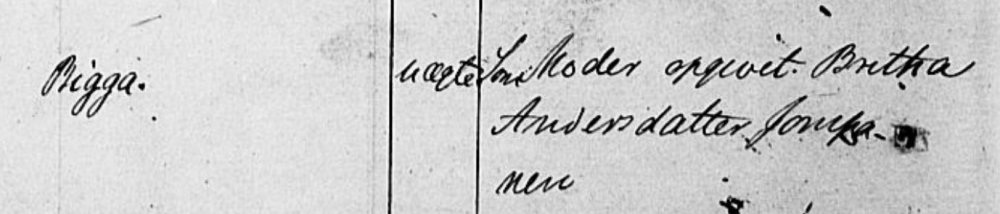 Bigga. uægte Søn Moder opgivet. Britha
Andersdatter Jompa-
nen